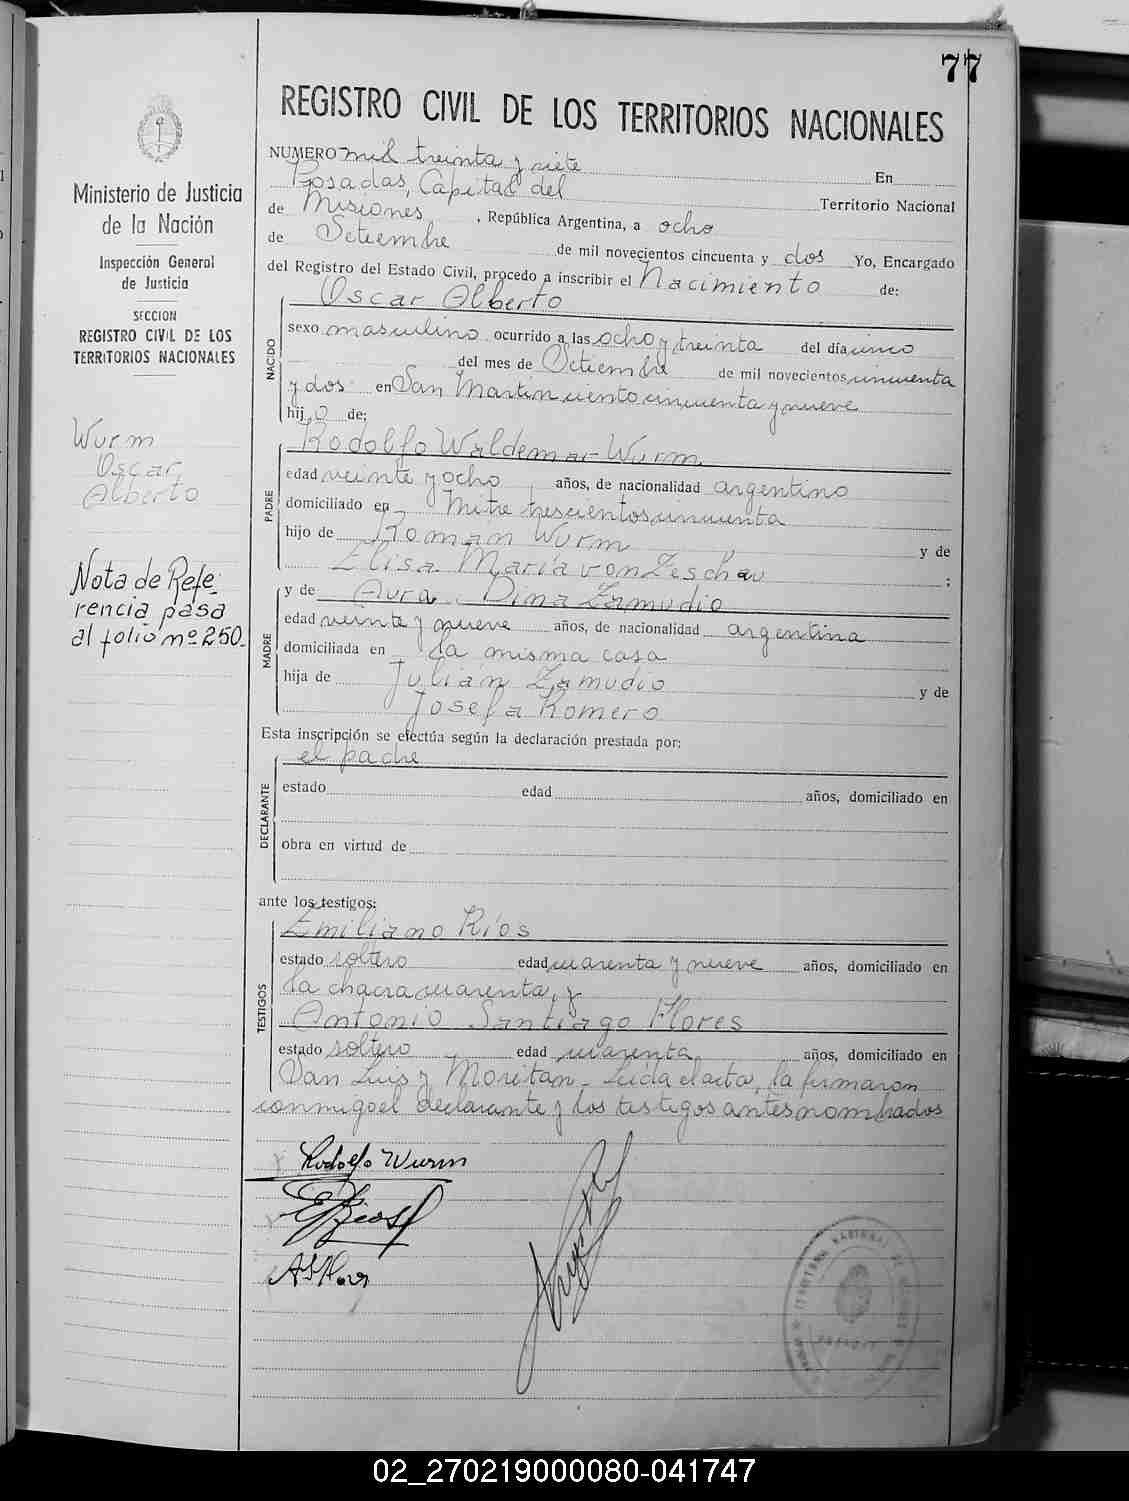 77
REGISTRO CIVIL DE LOS TERRITORIOS NACIONALES
Ministerio de Justicia
de la Nación
Inspección General
de Justicia
SECCION
REGISTRO CIVIL DE LOS
TERRITORIOS NACIONALES
Wurm
Oscar
Alberto
Nota de Refe-
rencia pasa
al folio nº 250.
NUMERO mil treinta y siete En
Posadas, Capital del Territorio Nacional
de Misiones, República Argentina, a ocho
de Setiembre de mil novecientos cincuenta y dos Yo, Encargado
del Registro del Estado Civil, procedo a inscribir el Nacimiento de:
NACIDO
Oscar Alberto
sexo masculino ocurrido a las ocho y treinta del día uno
del mes de Setiembre de mil novecientos cincuenta
y dos en San Martin ciento cincuenta y nueve
hijo de:
PADRE
Rodolfo Waldemar Wurm
edad veinte y ocho años, de nacionalidad argentino
domiciliado en Mitre trescientos cincuenta
hijo de Roman Wurm y de
Elisa Maria von Zeschau ;
MADRE
y de Aura Dina Zamudio
edad veinte y nueve años, de nacionalidad argentina
domiciliada en la misma casa
hija de Julián Zamudio y de
Josefa Romero
Esta inscripción se efectúa según la declaración prestada por:
DECLARANTE
el padre
estado edad años, domiciliado en
obra en virtud de
ante los testigos:
TESTIGOS
Emiliano Ríos
estado soltero edad cuarenta y nueve años, domiciliado en
la chacra cuarenta, y
Antonio Santiago Flores
estado soltero edad cuarenta años, domiciliado en
San Luis y Moritan - Leida el acta, la firmaron
conmigo el declarante y los testigos antes nombrados
Rodolfo Wurm
02_270219000080-041747